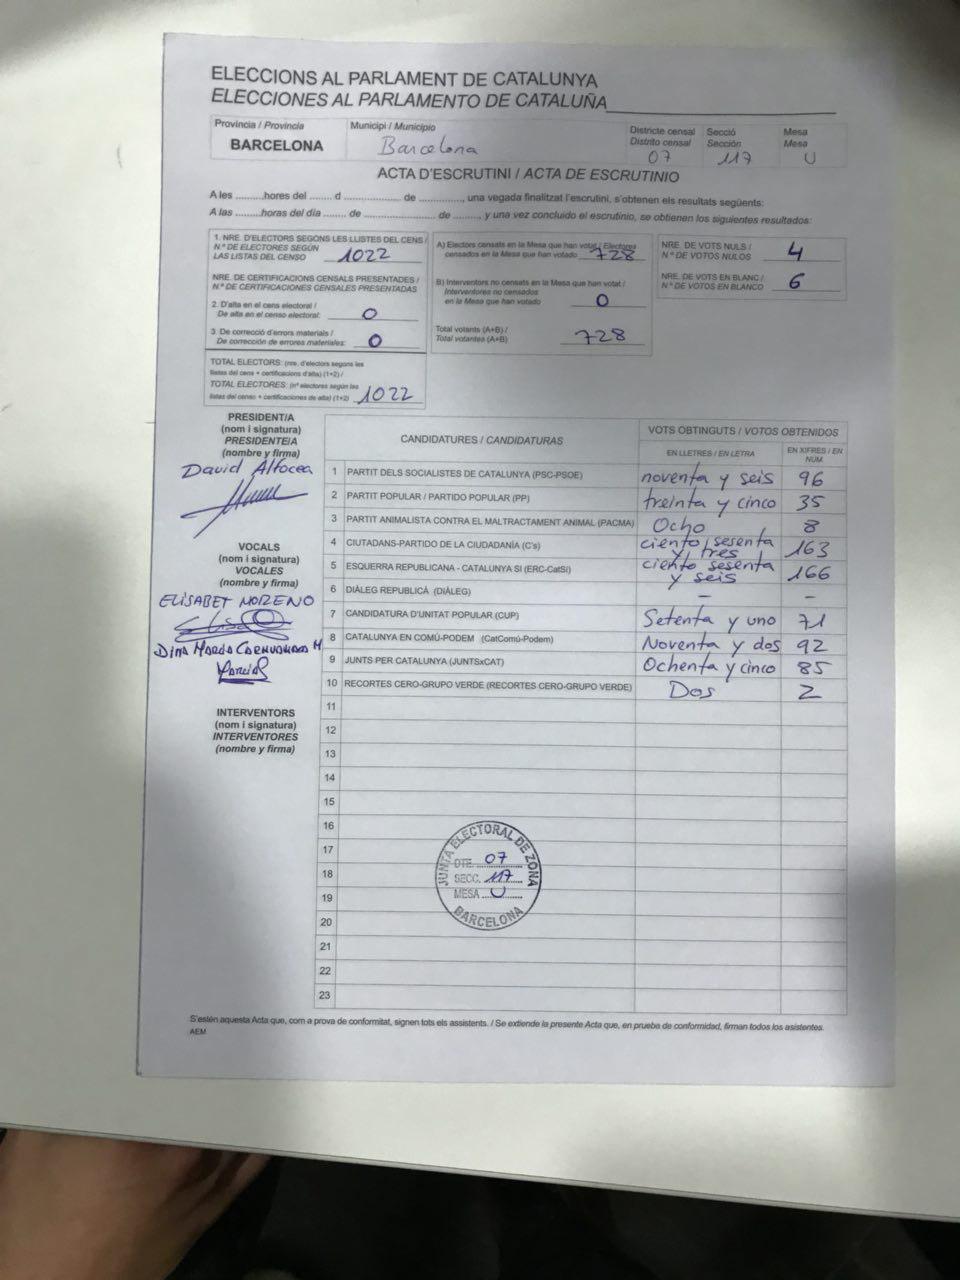 ELECCIONS AL PARLAMENT DE CATALUNYA
ELECCIONES AL PARLAMENTO DE CATALUÑA
Província / Provincia
BARCELONA
Municipi / Municipio
Barcelona
Districte censal
Distrito censal
07
Secció
Sección
117
Mesa
Mesa
U
ACTA D'ESCRUTINI / ACTA DE ESCRUTINIO
A les .........hores del ........ d ...................... de .............., una vegada finalitzat l'escrutini, s'obtenen els resultats següents:
A las .........horas del día ....... de ........................ de ........, y una vez concluido el escrutinio, se obtienen los siguientes resultados:
1. NRE. D'ELECTORS SEGONS LES LLISTES DEL CENS /
N.º DE ELECTORES SEGÚN
LAS LISTAS DEL CENSO
1022
NRE. DE CERTIFICACIONS CENSALS PRESENTADES /
N.º DE CERTIFICACIONES CENSALES PRESENTADAS
2. D'alta en el cens electoral /
De alta en el censo electoral:
0
3. De correcció d'errors materials /
De corrección de errores materiales:
0
TOTAL ELECTORS: (nre. d'electors segons les
llistes del cens + certificacions d'alta) (1+2) /
TOTAL ELECTORES: (nº electores según las
listas del censo + certificaciones de alta) (1+2)
1022
A) Electors censats en la Mesa que han votat / Electores
censados en la Mesa que han votado
728
B) Interventors no censats en la Mesa que han votat /
Interventores no censados
en la Mesa que han votado
0
Total votants (A+B) /
Total votantes (A+B)
728
NRE. DE VOTS NULS /
N.º DE VOTOS NULOS
4
NRE. DE VOTS EN BLANC /
N.º DE VOTOS EN BLANCO
6
PRESIDENT/A
(nom i signatura)
PRESIDENTE/A
(nombre y firma)
David Alfocea
VOCALS
(nom i signatura)
VOCALES
(nombre y firma)
ELISABET MORENO
INTERVENTORS
(nom i signatura)
INTERVENTORES
(nombre y firma)
CANDIDATURES / CANDIDATURAS
VOTS OBTINGUTS / VOTOS OBTENIDOS
EN LLETRES / EN LETRA
EN XIFRES / EN NUM.
1 PARTIT DELS SOCIALISTES DE CATALUNYA (PSC-PSOE) noventa y seis 96
2 PARTIT POPULAR / PARTIDO POPULAR (PP) treinta y cinco 35
3 PARTIT ANIMALISTA CONTRA EL MALTRACTAMENT ANIMAL (PACMA) Ocho 8
4 CIUTADANS-PARTIDO DE LA CIUDADANÍA (C's) ciento sesenta y tres 163
5 ESQUERRA REPUBLICANA - CATALUNYA SI (ERC-CatSí) ciento sesenta y seis 166
6 DIÀLEG REPUBLICÀ (DIÀLEG) – –
7 CANDIDATURA D'UNITAT POPULAR (CUP) Setenta y uno 71
8 CATALUNYA EN COMÚ-PODEM (CatComú-Podem) Noventa y dos 92
9 JUNTS PER CATALUNYA (JUNTSxCAT) Ochenta y cinco 85
10 RECORTES CERO-GRUPO VERDE (RECORTES CERO-GRUPO VERDE) Dos 2
11
12
13
14
15
16
17
18
19
20
21
22
23
JUNTA ELECTORAL DE ZONA
DTE. 07
SECC. 117
MESA U
BARCELONA
S'estén aquesta Acta que, com a prova de conformitat, signen tots els assistents. / Se extiende la presente Acta que, en prueba de conformidad, firman todos los asistentes.
AEM